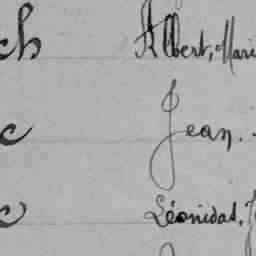 ch Albert, Mari
c Jean.
c Léonidas, J